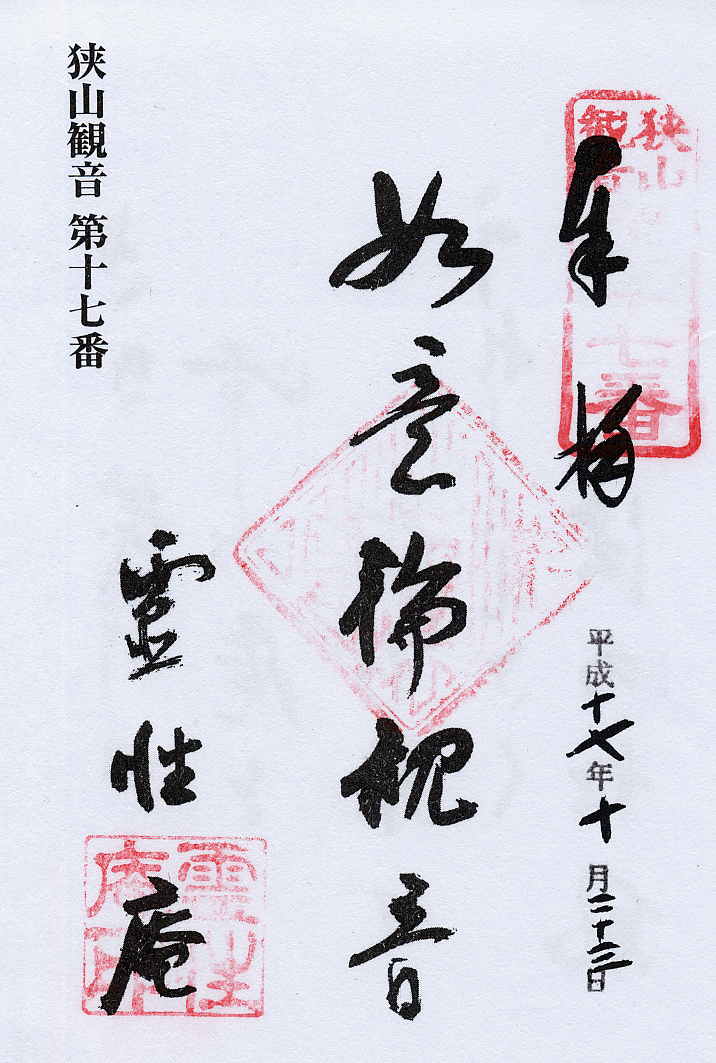 奉拝
狭山観音第十七番
平成十七年十月二十三日
如意輪観音
霊性庵
狭山観音 第十七番